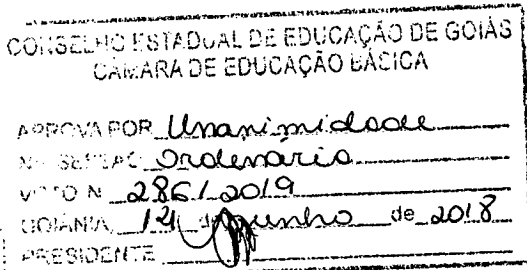 CONSELHO ESTADUAL DE EDUCAÇÃO DE GOIÁS
CÂMARA DE EDUCAÇÃO BÁSICA
APROVA POR Unanimidade
NA SESSÃO Ordenaria
VOTO N 286/2019
GOIÂNIA, 14 de junho de 2018
PRESIDENTE